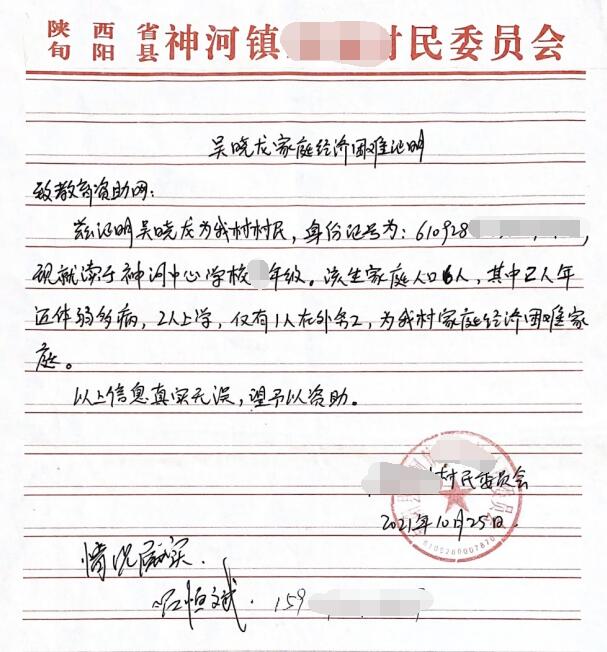 陕西省
旬阳县 神河镇 村民委员会
吴晓龙家庭经济困难证明
致教育资助网：
兹证明吴晓龙为我村村民，身份证号为：610928
现就读于神河中心学校 年级。该生家庭人口6人，其中2人年
迈体弱多病，2人上学，仅有1人在外务工，为我村家庭经济困难家
庭。
以上信息真实无误，望予以资助。
村民委员会
2021年10月25日.
情况属实.
恒斌. 159